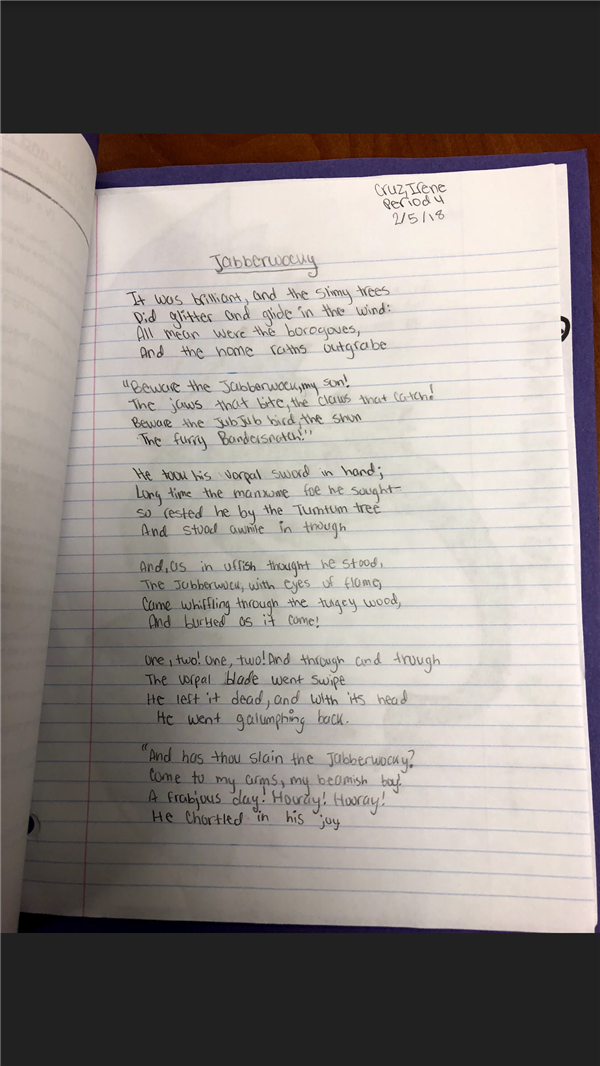 Cruz, Irene
Period 4
2/5/18
Jabberwocky
It was brilliant, and the slimy trees
Did glitter and glide in the wind:
All mean were the borogoves,
And the home raths outgrabe
"Beware the Jabberwock, my son!
The jaws that bite, the claws that catch!
Beware the JubJub bird, the shun
The furry Bandersnatch!"
He took his vorpal sword in hand;
Long time the manxume foe he sought-
so rested he by the Tumtum tree
And stood awhile in though
And, as in uffish thought he stood,
The Jabberwock, with eyes of flame,
Came whiffling through the tulgey wood,
And burbled as it came!
One, two! One, two! And through and trough
The vorpal blade went swipe
He left it dead, and with its head
He went galumphing back.
"And has thou slain the Jabberwocky?
Come to my arms, my beamish boy!
A Frabjous day! Houray! Hooray!
He Chortled in his joy